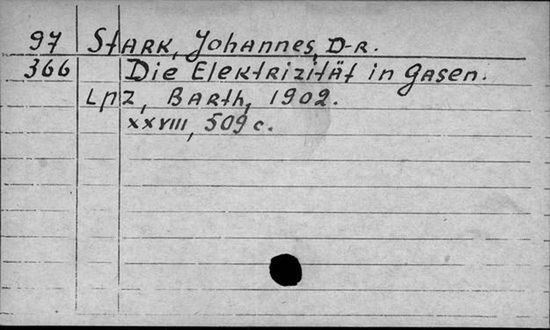 97 Stark, Johannes, D-r.
366 Die Elektrizität in Gasen.
Lpz, Barth, 1902.
XXVIII, 509 c.